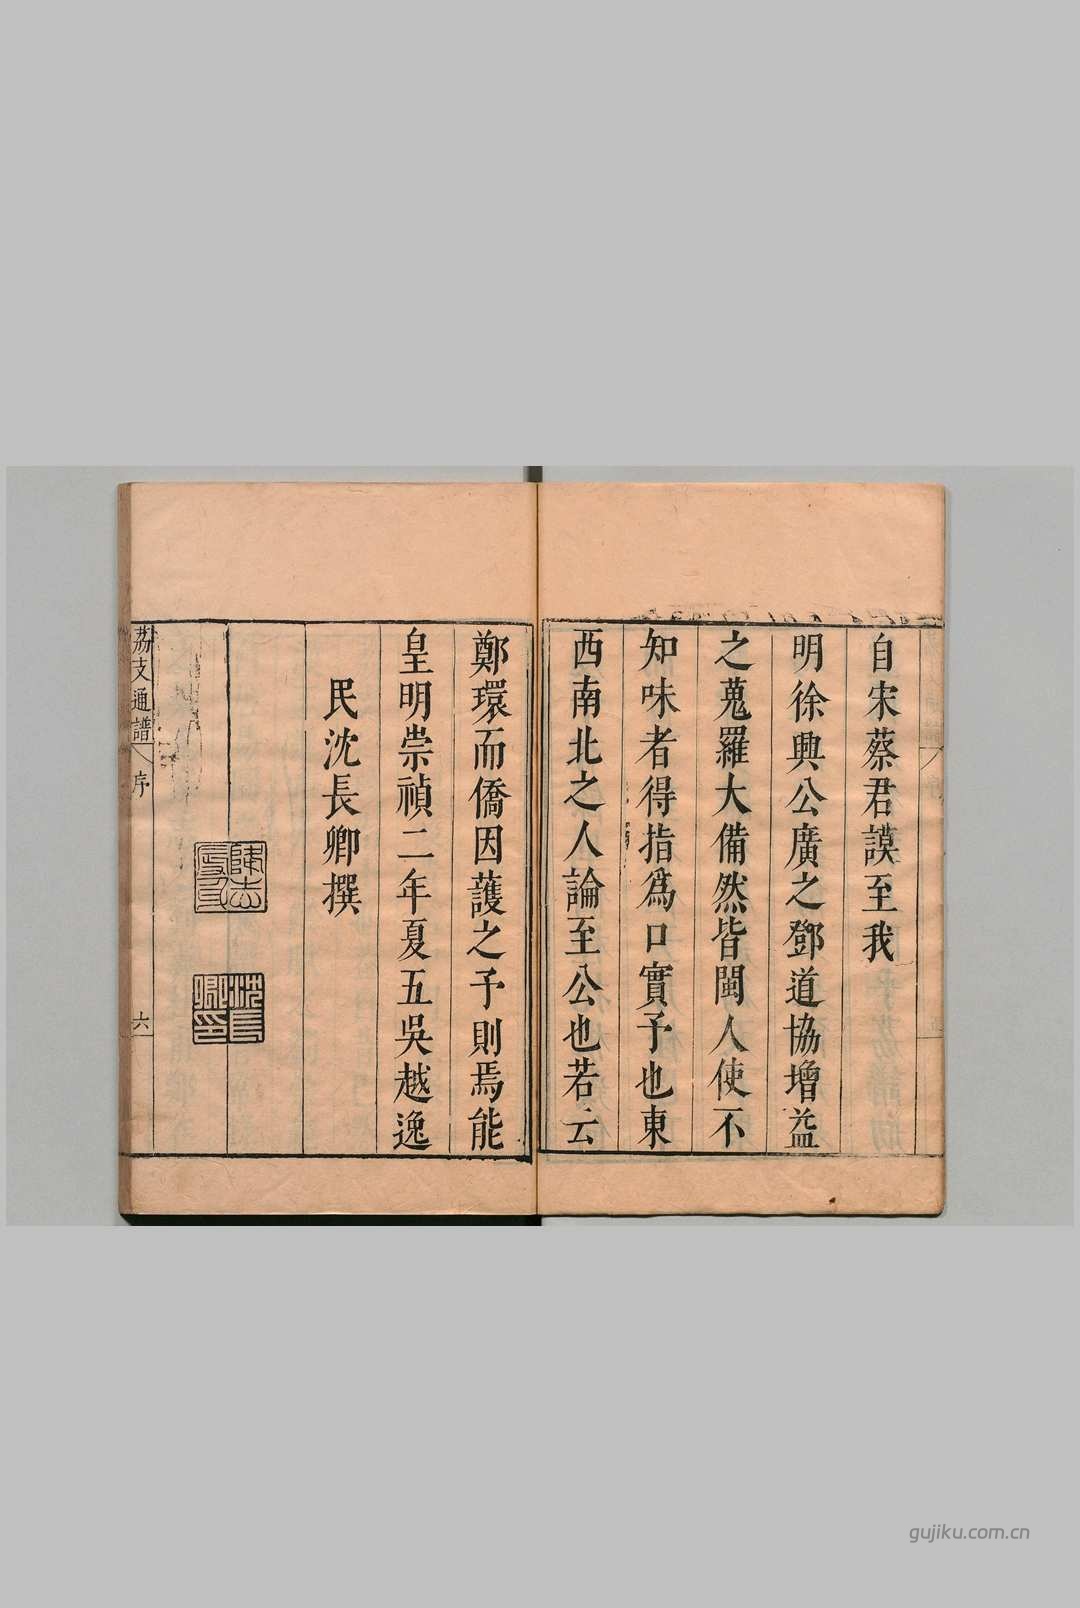 自宋蔡君謨至我
明徐興公廣之鄧道協增益
之蒐羅大備然皆閩人使不
知味者得指爲口實予也東
西南北之人論至公也若云
鄭環而僑因護之予則焉能
皇明崇禎二年夏五吳越逸
民沈長卿撰
荔支通譜
序
六
沈長卿印
gujiku.com.cn